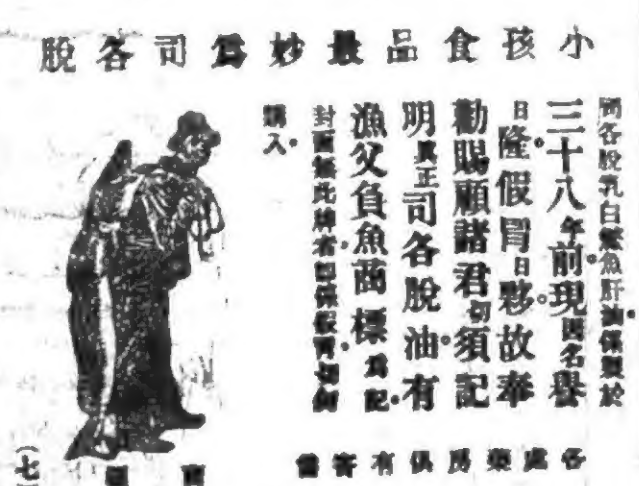 小孩食品最妙爲司各脫
司各脫乳白鰵魚肝油係製於
三十八年前。現因名譽
日隆。假冒日夥。故奉
勸賜顧諸君切須記
明真正司各脫油。有
漁父負魚商標爲記。
封面無此牌者。卽係假冒。切勿
購入。
各處藥房俱有寄售
(七